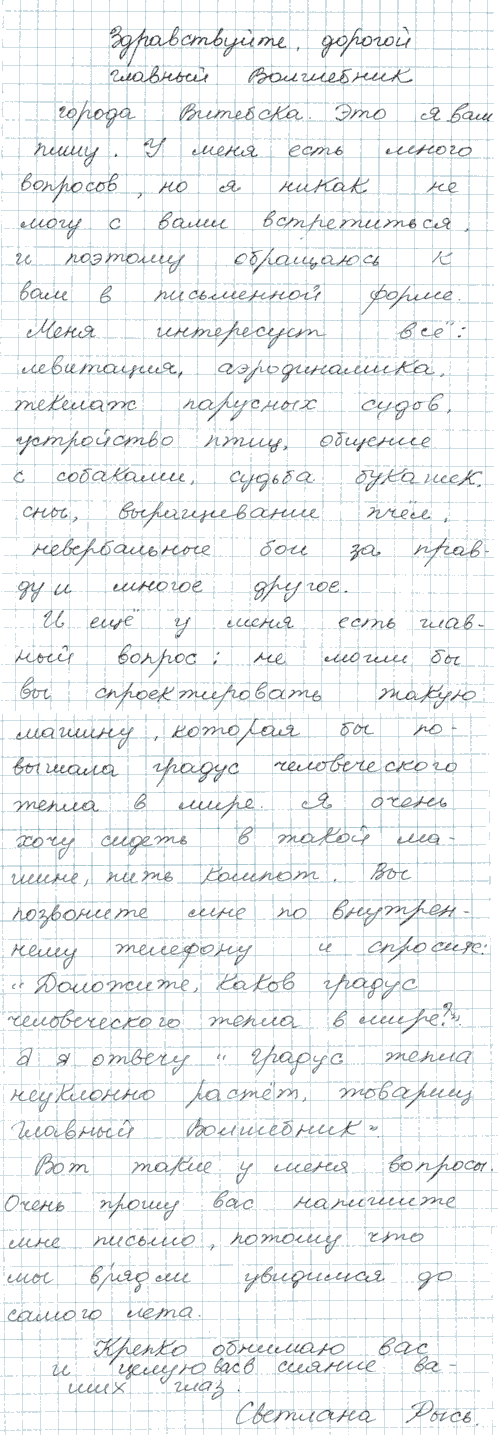 Здравствуйте, дорогой
главный Волшебник
города Витебска. Это я вам
пишу. У меня есть много
вопросов, но я никак не
могу с вами встретиться,
и поэтому обращаюсь к
вам в письменной форме.
Меня интересует всё:
левитация, аэродинамика,
текелаж парусных судов,
устройство птиц, общение
с собаками, судьба букашек,
сны, выращивание пчёл,
невербальные бои за прав-
ду и многое другое.
И ещё у меня есть глав-
ный вопрос: не могли бы
вы спроектировать такую
машину, которая бы по-
вышала градус человеческого
тепла в мире. Я очень
хочу сидеть в такой ма-
шине, пить компот. Вы
позвоните мне по внутрен-
нему телефону и спросите:
"Доложите, каков градус
человеческого тепла в мире?",
а я отвечу "градус тепла
неуклонно растёт, товарищ
главный Волшебник"
Вот такие у меня вопросы.
Очень прошу вас напишите
мне письмо, потому что
мы врядли увидимся до
самого лета.
Крепко обнимаю вас
и целую вас в сияние ва-
ших глаз.
Светлана Рысь.